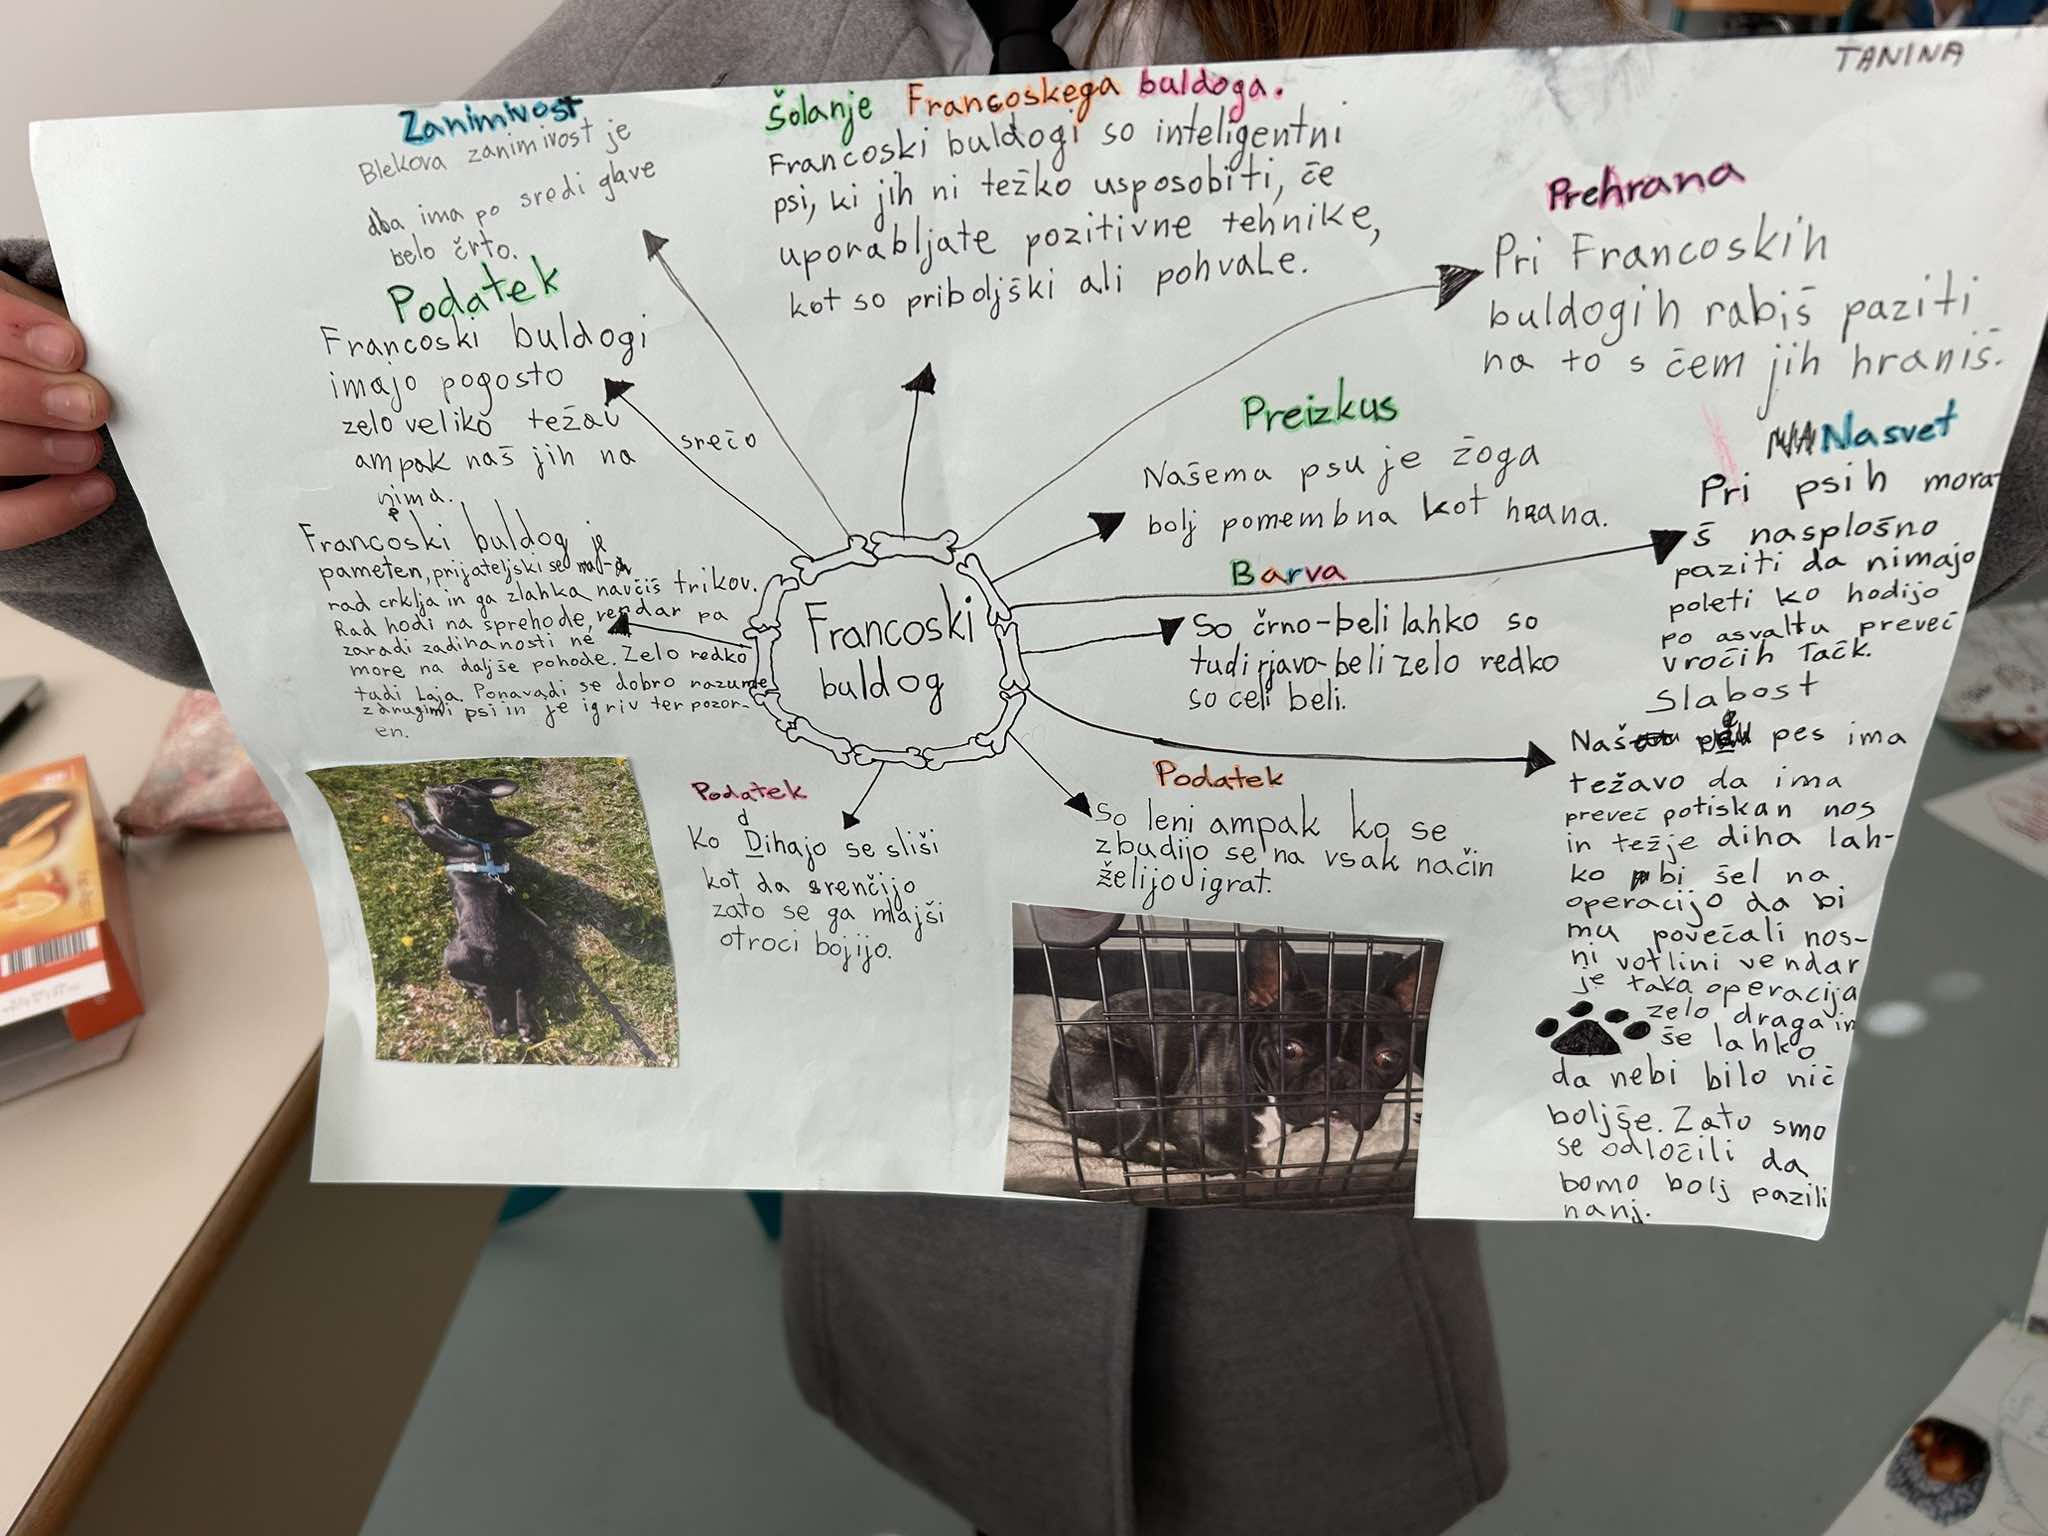 TANINA
Zanimivost
Blekova zanimivost je
da ima po sredi glave
belo črto.
Podatek
Francoski buldogi
imajo pogosto
zelo veliko težav
ampak naš jih na
srečo
nima.
Francoski buldog je
pameten, prijateljski se
rad crklja in ga zlahka navčiš trikov.
Rad hodi na sprehode, vendar pa
zaradi zadihanosti ne
more na daljše pohode. Zelo redko
tudi laja. Ponavadi se dobro razume
z drugimi psi in je igriv ter pozor-
en.
Šolanje Francoskega buldoga.
Francoski buldogi so inteligentni
psi, ki jih ni težko usposobiti, če
uporabljate pozitivne tehnike,
kot so priboljški ali pohvale.
Prehrana
Pri Francoskih
buldogih rabiš paziti
na to s čem jih hraniš.
Preizkus
Našema psu je žoga
bolj pomembna kot hrana.
Nasvet
Pri psih mora-
š nasplošno
paziti da nimajo
poleti ko hodijo
po asvaltu preveč
vročih Tačk.
Barva
So črno-beli lahko so
tudi rjavo-beli zelo redko
so celi beli.
Francoski
buldog
Slabost
Naš pes ima
težavo da ima
preveč potiskan nos
in težje diha lah-
ko bi šel na
operacijo da bi
mu povečali nos-
ni votlini vendar
je taka operacija
zelo draga in
še lahko
da nebi bilo nič
boljše. Zato smo
se odločili da
bomo bolj pazili
nanj.
Podatek
Ko dihajo se sliši
kot da srenčijo
zato se ga mlajši
otroci bojijo.
Podatek
So leni ampak ko se
zbudijo se na vsak način
želijo igrat.